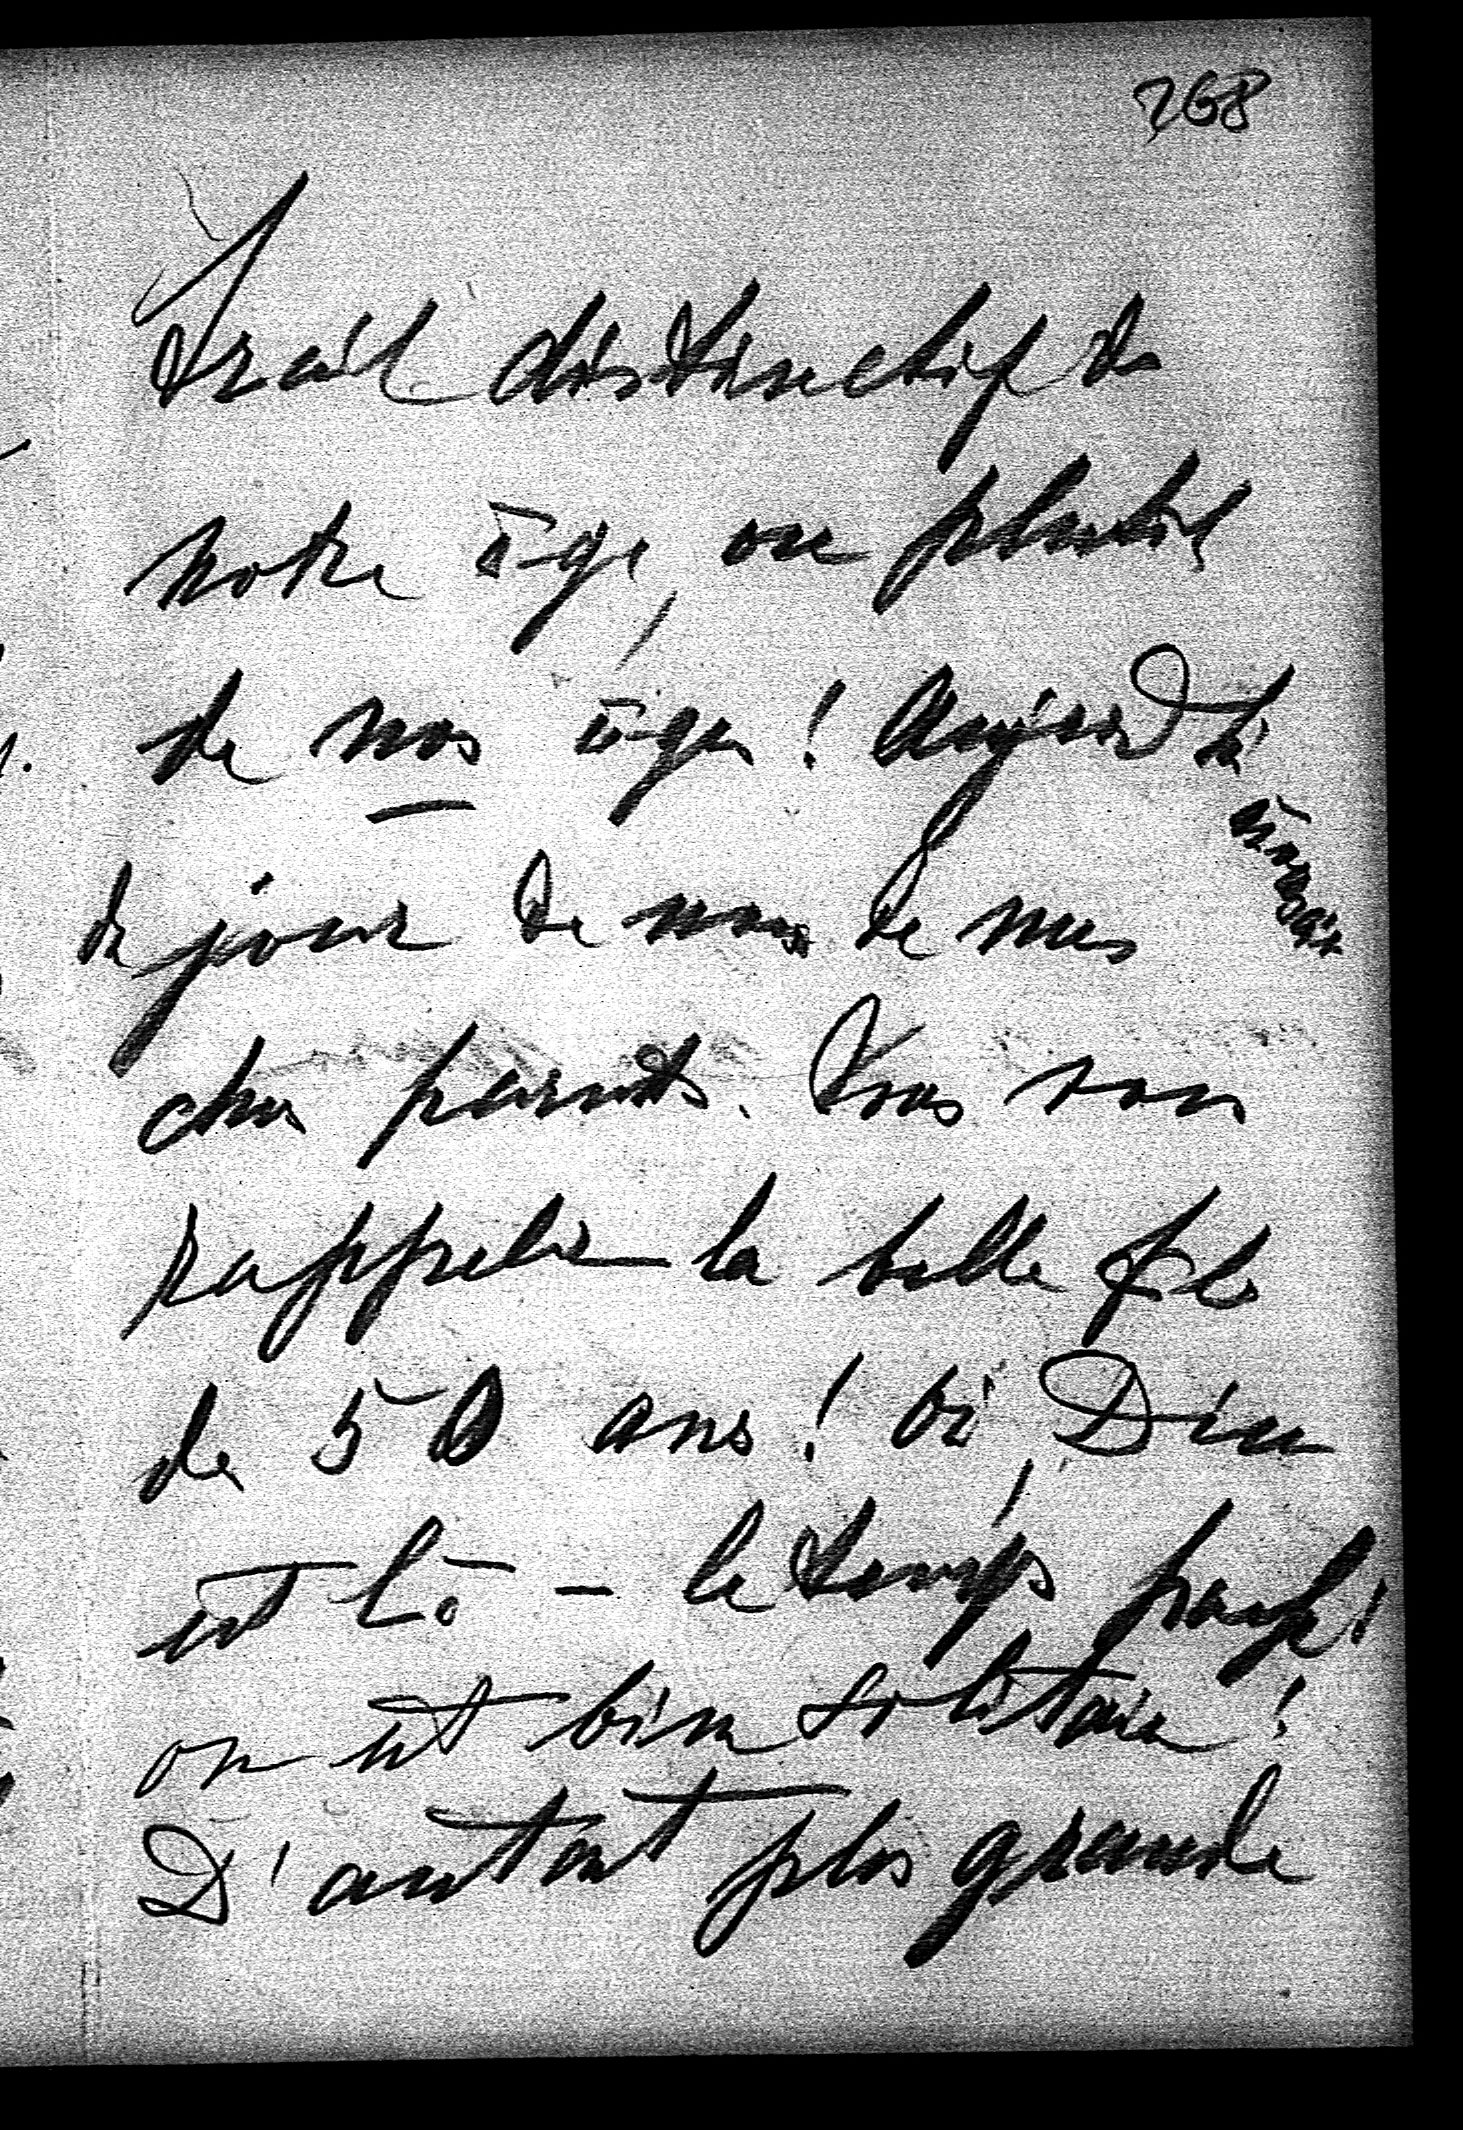 268
trait distinctif de
notre âge, ou plutôt
de nos âges! Aujourd'hui
anniversaire
du jour de noces de mes
chers parents. Vous vous
rappelez la belle fête
de 50 ans! Où Dieu
est là - le temps passe!
on est bien solitaire!
D'autant plus grande